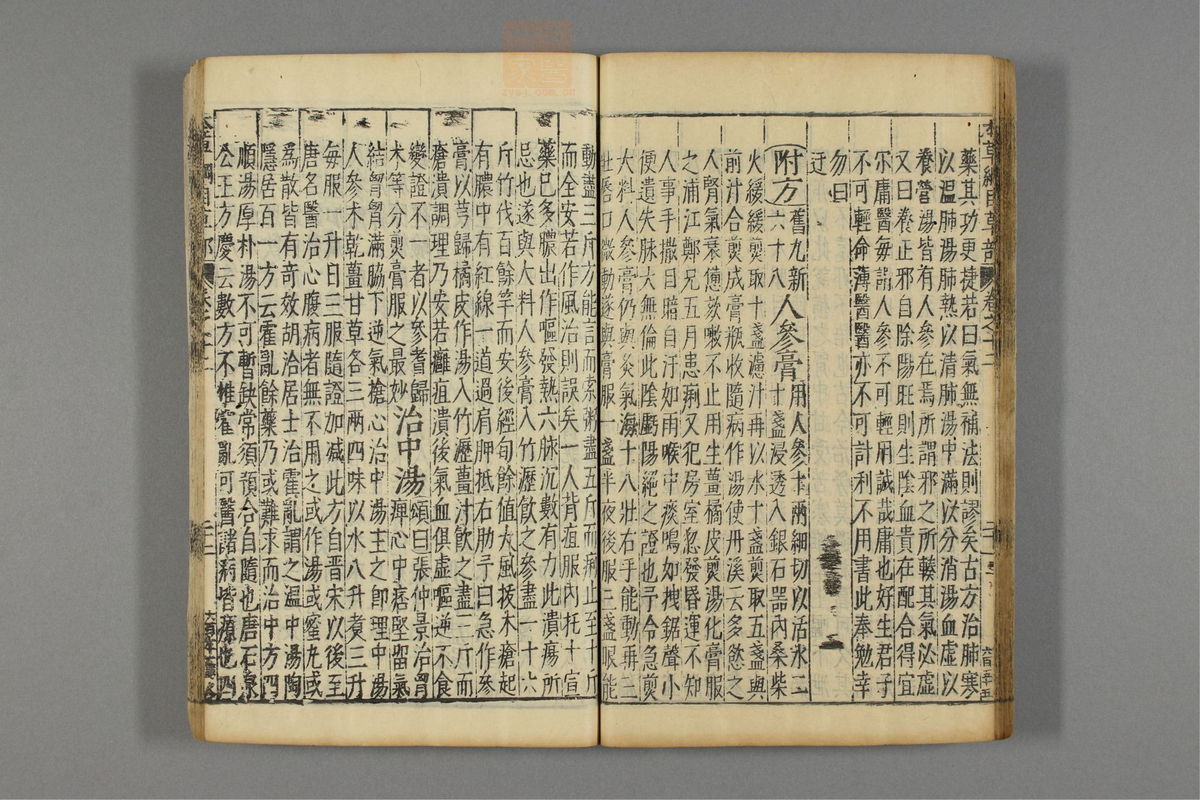 藥其功更捷若曰氣無補法則謬矣古方治肺寒
以溫肺湯肺熱以清肺湯中滿以分消湯血虛以
養營湯皆有人參在焉所謂邪之所輳其氣必虛
又曰養正邪自除陽旺則生陰血貴在配合得宜
尔庸醫每謂人參不可輕用誠哉庸也好生君子
不可輕命薄醫醫亦不可計利不用書此奉勉幸
勿曰
迂
附方
舊九新
六十八
人參膏
用人參十兩細切以活水二
十盞浸透入銀石器內桑柴
火緩緩煎取十盞濾汁再以水十盞煎取五盞與
前汁合煎成膏瓶收隨病作湯使丹溪云多慾之
人腎氣衰憊欬嗽不止用生薑橘皮煎湯化膏服
之浦江鄭兄五月患痢又犯房室忽發昏運不知
人事手撒目暗自汗如雨喉中痰鳴如拽鋸聲小
便遺失脉大無倫此陰虧陽絕之證也予令急煎
大料人參膏仍與灸氣海十八壯右手能動再三
壯唇口微動遂與膏服一盞半夜後服三盞眼能
動盡三斤方能言而索粥盡五斤而痢止至十斤
而全安若作風治則誤矣一人背疽服內托十宣
藥已多膿出作嘔發熱六脉沉數有力此潰瘍所
忌也遂與大料人參膏入竹瀝飲之參盡一十六
斤竹伐百餘竿而安後經旬餘值大風拔木瘡起
有膿中有紅線一道過肩胛抵右肋予曰急作參
膏以芎歸橘皮作湯入竹瀝薑汁飲之盡三斤而
瘡潰調理乃安若癰疽潰後氣血俱虛嘔逆不食
變證不一者以參耆歸
术等分煎膏服之最妙
治中湯
頌曰張仲景治胷
痺心中痞堅留氣
結胷胷滿脇下逆氣搶心治中湯主之即理中湯
人參术乾薑甘草各三兩四味以水八升煮三升
每服一升日三服隨證加減此方自晉宋以後至
唐名醫治心腹病者無不用之或作湯或蜜丸或
爲散皆有奇效胡洽居士治霍亂謂之溫中湯陶
隱居百一方云霍亂餘藥乃或難求而治中方四
順湯厚朴湯不可暫缺常須預合自隨也唐石泉
公王方慶云數方不惟霍亂可醫諸病皆療也四